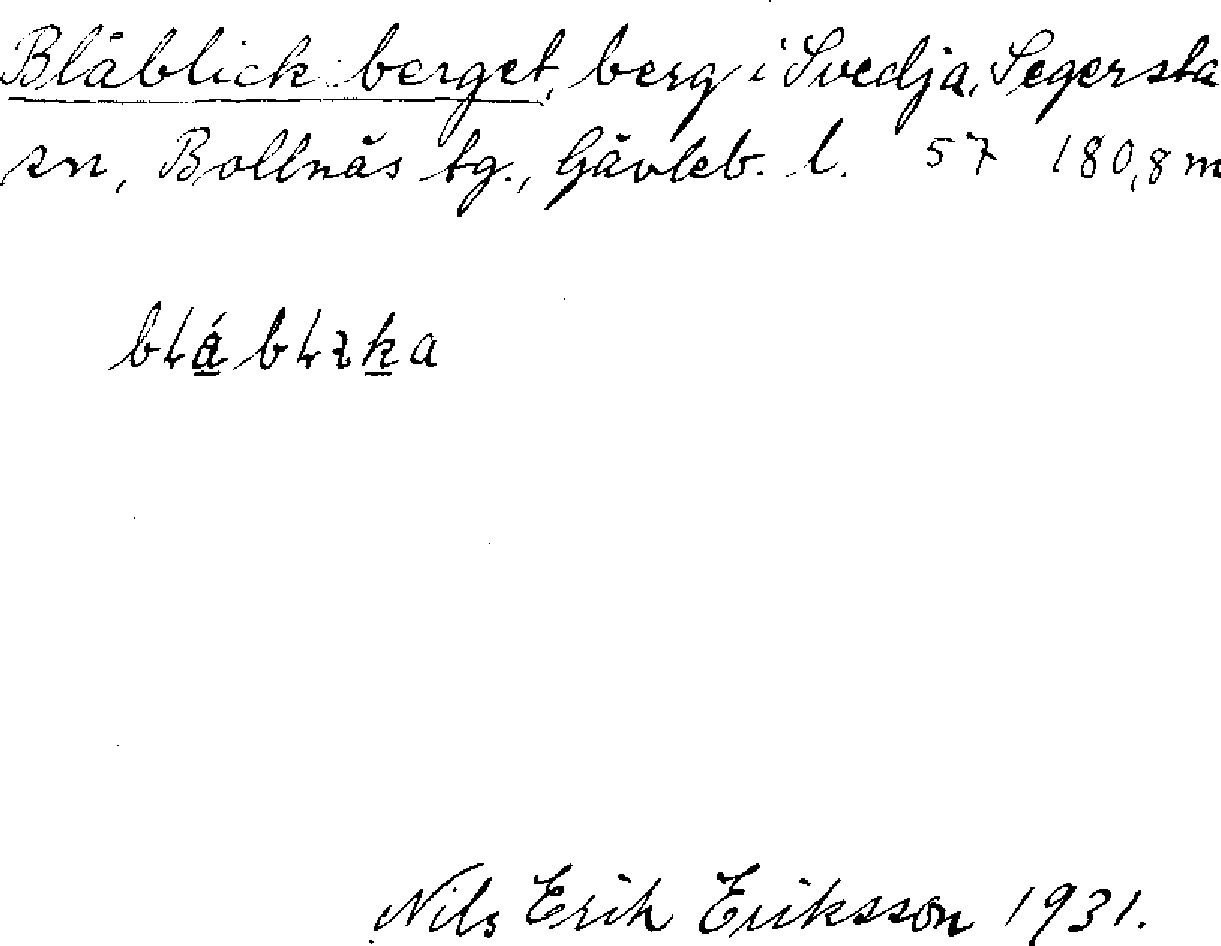 Blåblick berget, berg i Svedja, Segersta
sn, Bollnäs tg., Gävleb. l. 57 180,8 m
Nils Erik Eriksson 1931.